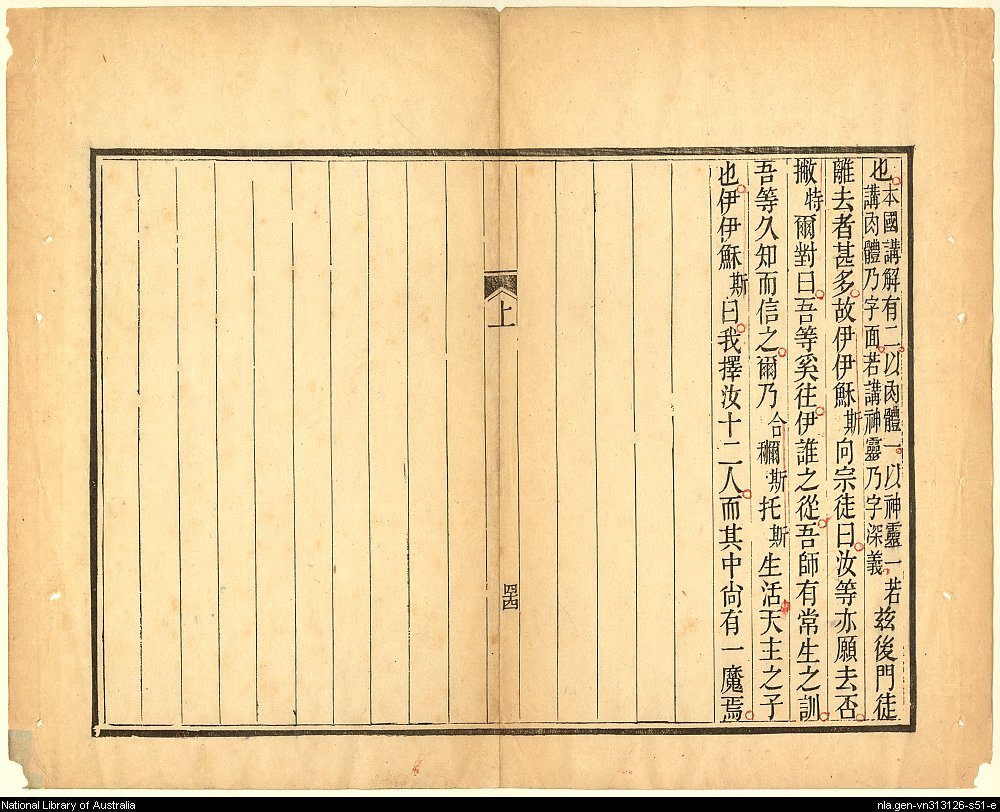 也本國講解有二以肉體一以神靈一若講肉體乃字面若講神靈乃字深義兹後門徒
離去者甚多故伊伊穌斯向宗徒曰汝等亦願去否
撇特爾對曰吾等奚往伊誰之從吾師有常生之訓
吾等久知而信之爾乃合穪斯托斯生活天主之子
也伊伊穌斯曰我擇汝十二人而其中尚有一魔焉
上
四四
National Library of Australia
nla.gen-vn313126-s51-e